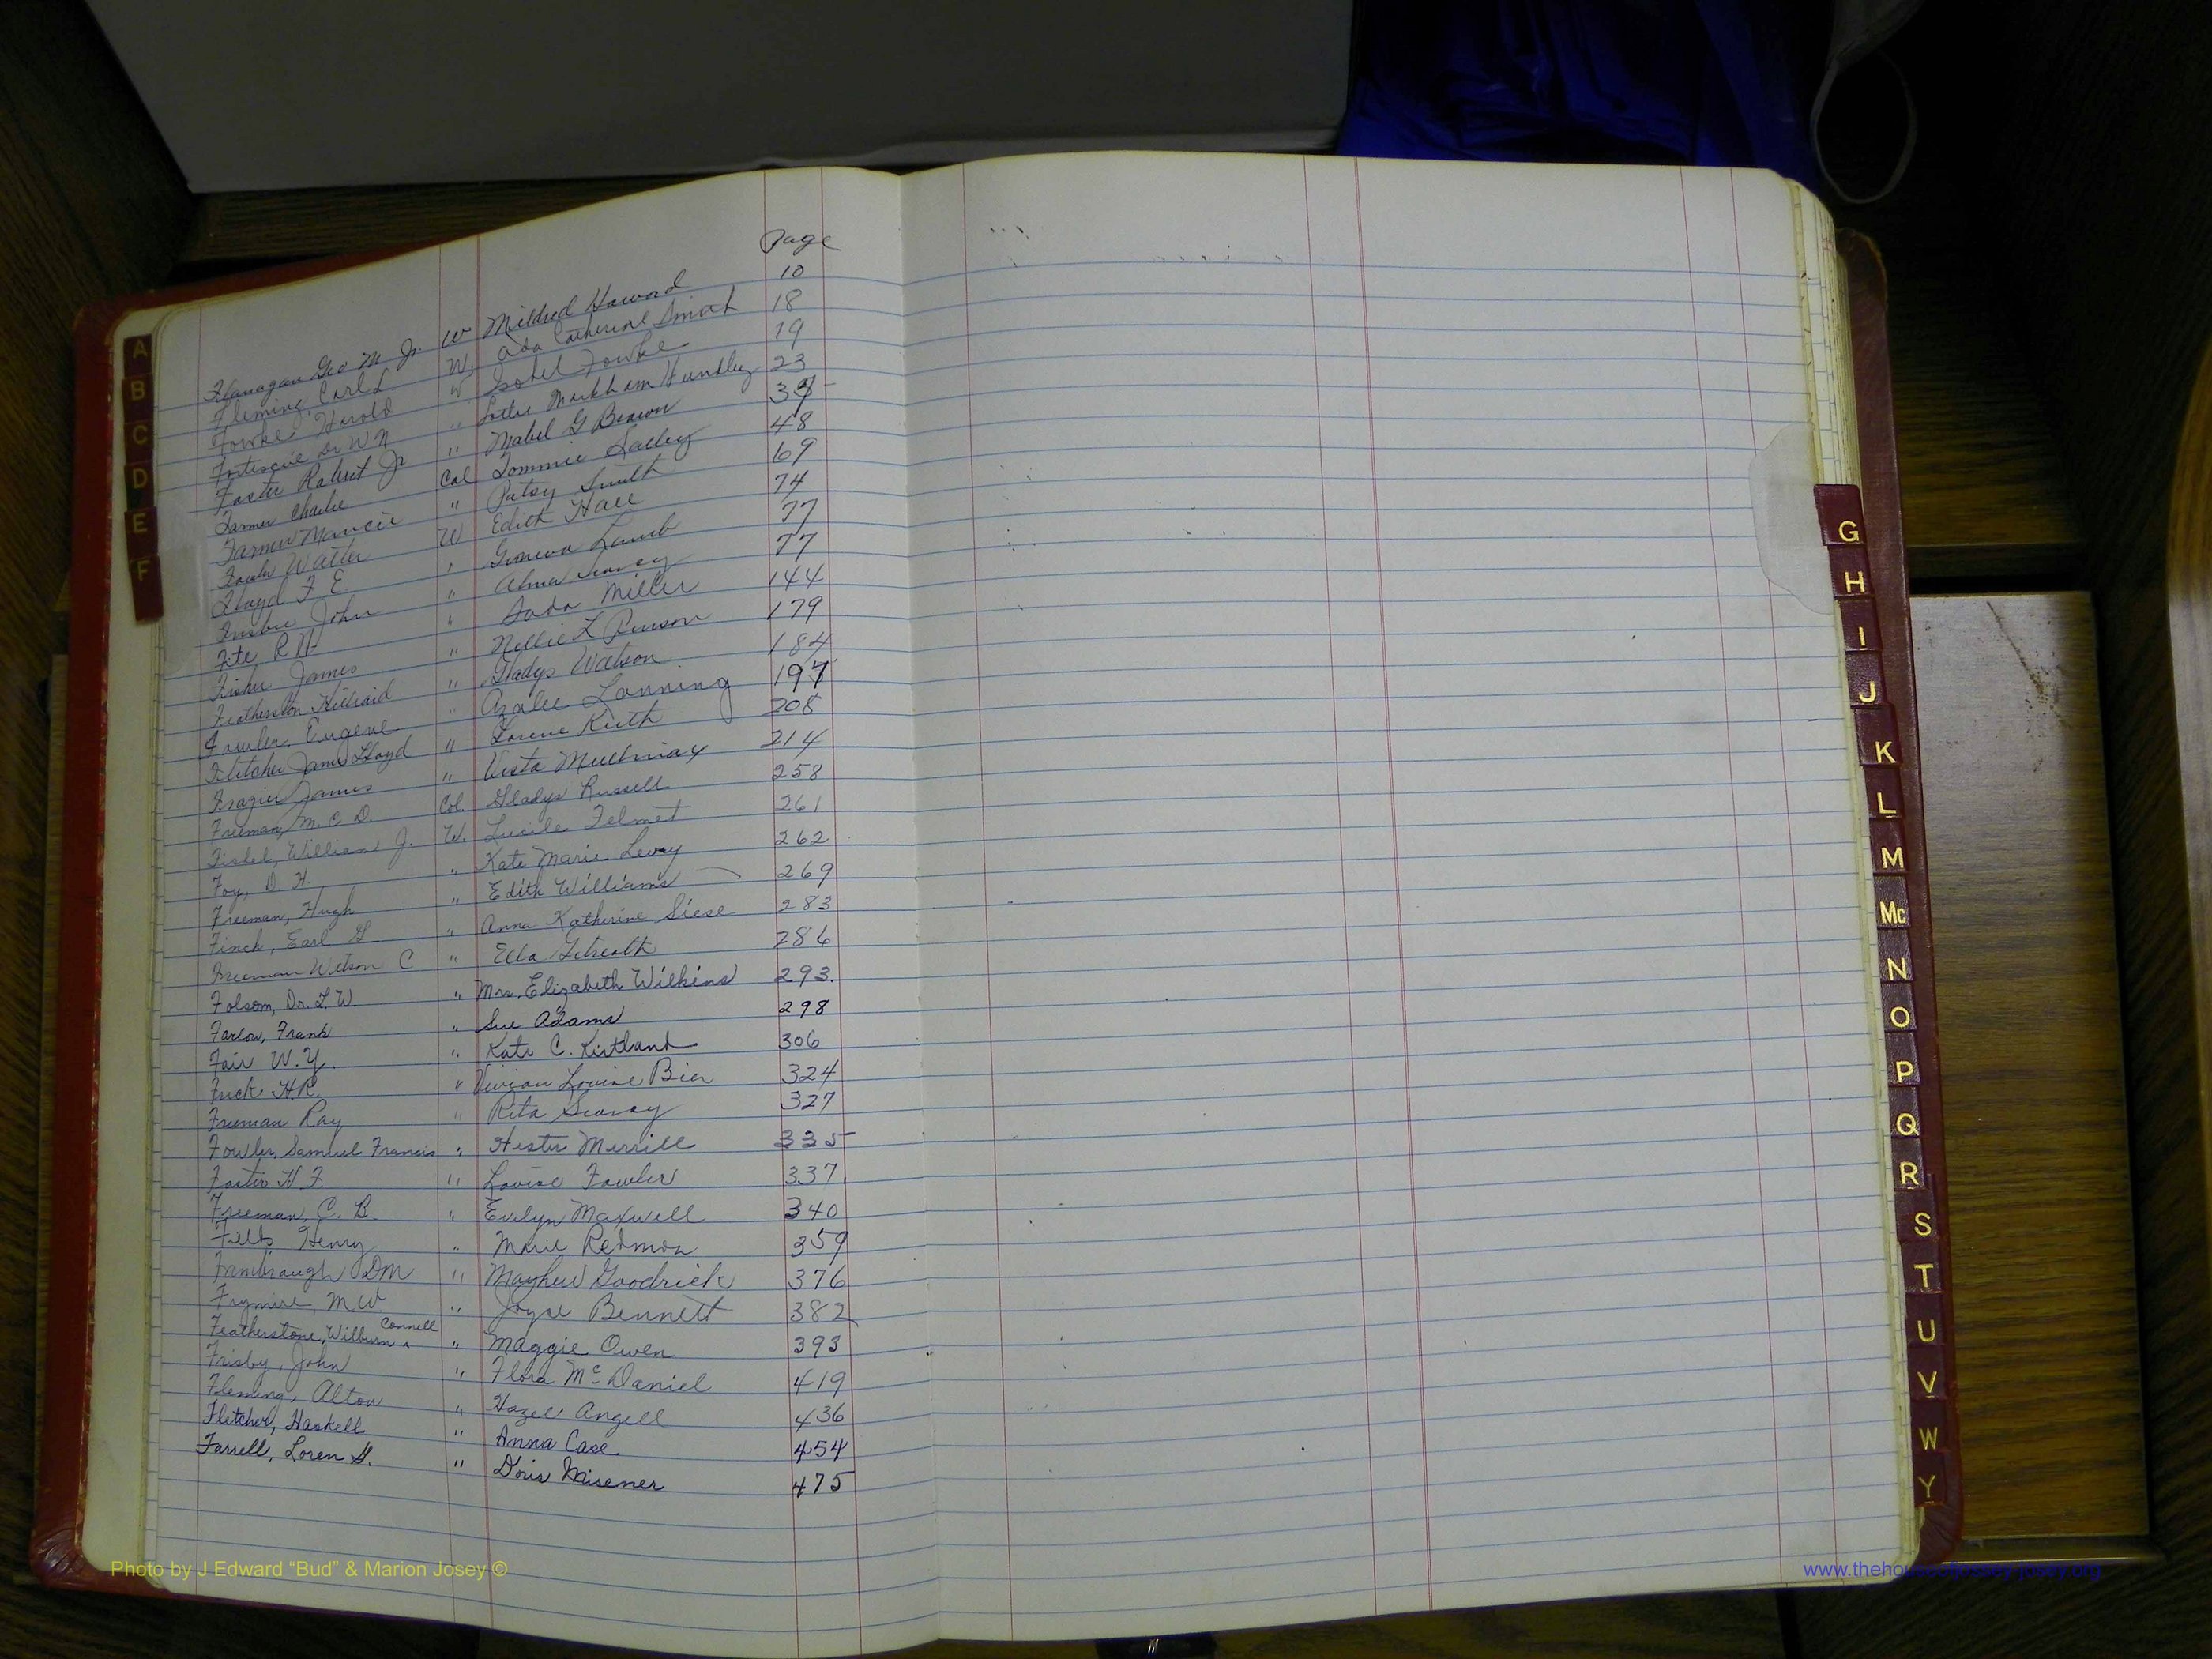 Page
Flanagan Geo M Jr. W Mildred Howard 10
Fleming, Carl L W. Ada Catherine Smith 18
Fowke Harold W Isobel Fowke 19
Dr W N " Markham Huntley 23
Foster Robert Jr " Mabel G 35
Farmer Charlie Col Tommie Lacky 48
Farmer " Patsy Smith 69
Fowler Walter W Edith Hall 74
Floyd F E " Geneva Lamb 77
John " Alma 77
Fite R H " Miller 144
Fisher James " Nellie L Pinson 179
Featherston " Gladys Watson 184
Fowler, Eugene " Azalee Lanning 197
Fletcher James Lloyd " Lorene Keith 208
Frazier James " Vesta 214
Freeman, M. C. D. Col. Gladys Russell 258
Fishel, William J. W. Lucile Felmet 261
Foy, D. H. " Kate Marie Levoy 262
Freeman, Hugh " Edith Williams 269
Finch, Earl G " Anna Katherine Siese 283
Freeman Wilson C " Ella Gilreath 286
Folsom, Dr. T. W. " Mrs. Elizabeth Wilkins 293.
Farlow, Frank " Sue Adams 298
Fair W. Y. " Kate C. Kirtland 306
Fuck H. R. " Vivian Louise Bier 324
Freeman Ray " Rita Searcy 327
Fowler, Samuel Francis " Hester Merrill 335
Foster H F. " Louise Fowler 337
Freeman, C. B. " Evelyn Maxwell 340
Felts Henry " Marie Redmon 359
Fambraugh DM " Mayhew Goodrick 376
Frymire, M. W. " Joyce Bennett 382
Featherstone, Wilburn Connell " Maggie Owen 393
Frisby, John " Flora McDaniel 419
Fleming, Alton " Hazel Angell 436
Fletcher, Haskell " Anna Case 454
Farrell, Loren G. " Doris Misener 475
A
B
C
D
E
F
G
H
I
J
K
L
M
Mc
N
O
P
Q
R
S
T
U
V
W
Y
Photo by J Edward “Bud” & Marion Josey ©
www.thehouseofjossey-josey.org